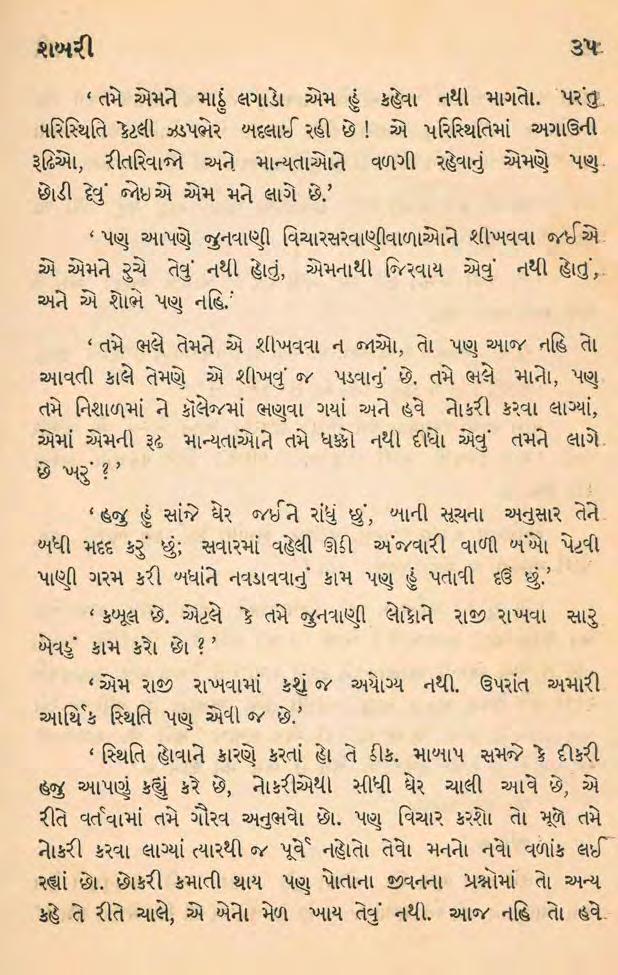 શબરી ૩૫
‘ તમે એમને માઠું લગાડો એમ હું કહેવા નથી માગતો. પરંતુ
પરિસ્થિતિ કેટલી ઝડપભેર બદલાઈ રહી છે ! એ પરિસ્થિતિમાં અગાઉની
રૂઢિઓ, રીતરિવાજો અને માન્યતાઓને વળગી રહેવાનું એમણે પણ
છોડી દેવું જોઇએ એમ મને લાગે છે.’
‘ પણ આપણે જુનવાણી વિચારસરવાણીવાળાઓને શીખવવા જઈએ
એ એમને રુચે તેવું નથી હોતું, એમનાથી જિરવાય એવું નથી હોતું,
અને એ શોભે પણ નહિ.’
‘ તમે ભલે તેમને એ શીખવવા ન જાઓ, તો પણ આજ નહિ તો
આવતી કાલે તેમણે એ શીખવું જ પડવાનું છે. તમે ભલે માનો, પણ
તમે નિશાળમાં ને કૉલેજમાં ભણવા ગયાં અને હવે નોકરી કરવા લાગ્યાં,
એમાં એમની રૂઢ માન્યતાઓને તમે ધક્કો નથી દીધો એવું તમને લાગે
છે ખરું ? ’
‘ હજુ હું સાંજે ઘેર જઈને રાંધું છું, બાની સૂચના અનુસાર તેને
બધી મદદ કરું છું; સવારમાં વહેલી ઊઠી અંજવારી વાળી બંબો પેટવી
પાણી ગરમ કરી બધાંને નવડાવવાનું કામ પણ હું પતાવી દઉં છું.’
‘ કબૂલ છે. એટલે કે તમે જુનવાણી લોકોને રાજી રાખવા સારુ
બેવડું કામ કરો છો ? ’
‘ એમ રાજી રાખવામાં કશું જ અયોગ્ય નથી. ઉપરાંત અમારી
આર્થિક સ્થિતિ પણ એવી જ છે.’
‘ સ્થિતિ હોવાને કારણે કરતાં હો તે ઠીક. માબાપ સમજે કે દીકરી
હજુ આપણું કહ્યું કરે છે, નોકરીએથી સીધી ઘેર ચાલી આવે છે, એ
રીતે વર્તવામાં તમે ગૌરવ અનુભવો છો. પણ વિચાર કરશો તો મૂળે તમે
નોકરી કરવા લાગ્યાં ત્યારથી જ પૂર્વે નહોતો તેવો મનનો નવો વળાંક લઈ
રહ્યાં છો. છોકરી કમાતી થાય પણ પોતાના જીવનના પ્રશ્નોમાં તો અન્ય
કહે તે રીતે ચાલે, એ બેનો મેળ ખાય તેવું નથી. આજ નહિ તો હવે